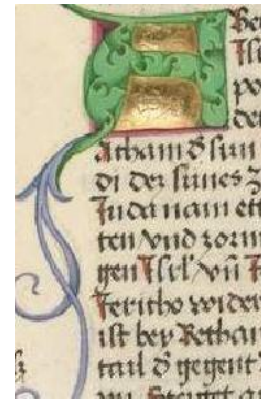 Be
Isl
po
der
atham d͛ sun
di der sunes z
Juda nam ett
ten vnd zorn
gen Isrl' vn̄
Jericho wider
ist bey Bethau
tail d͛ gegent